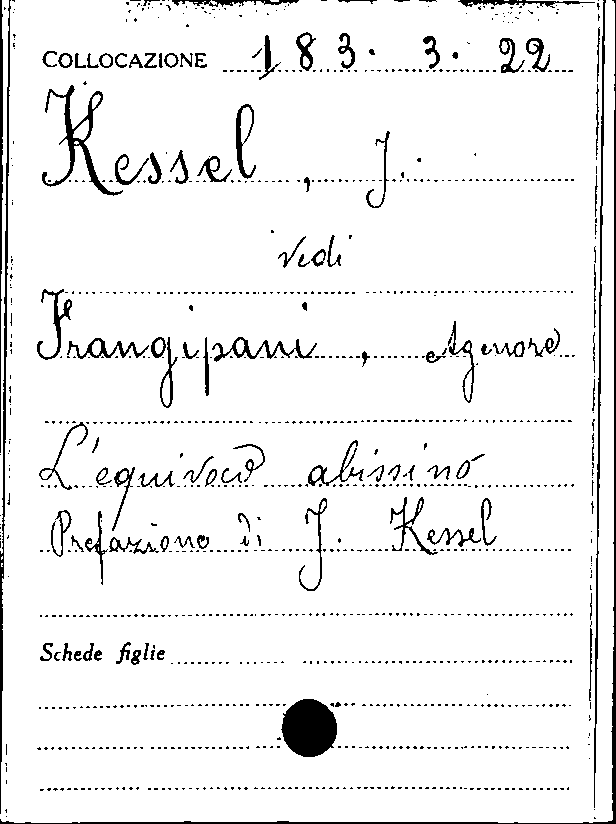 COLLOCAZIONE 183. 3. 22
Kessel, J.
vedi
Frangipani, Agenore
L'equivoco abissino
Prefazione di J. Kessel
Schede figlie